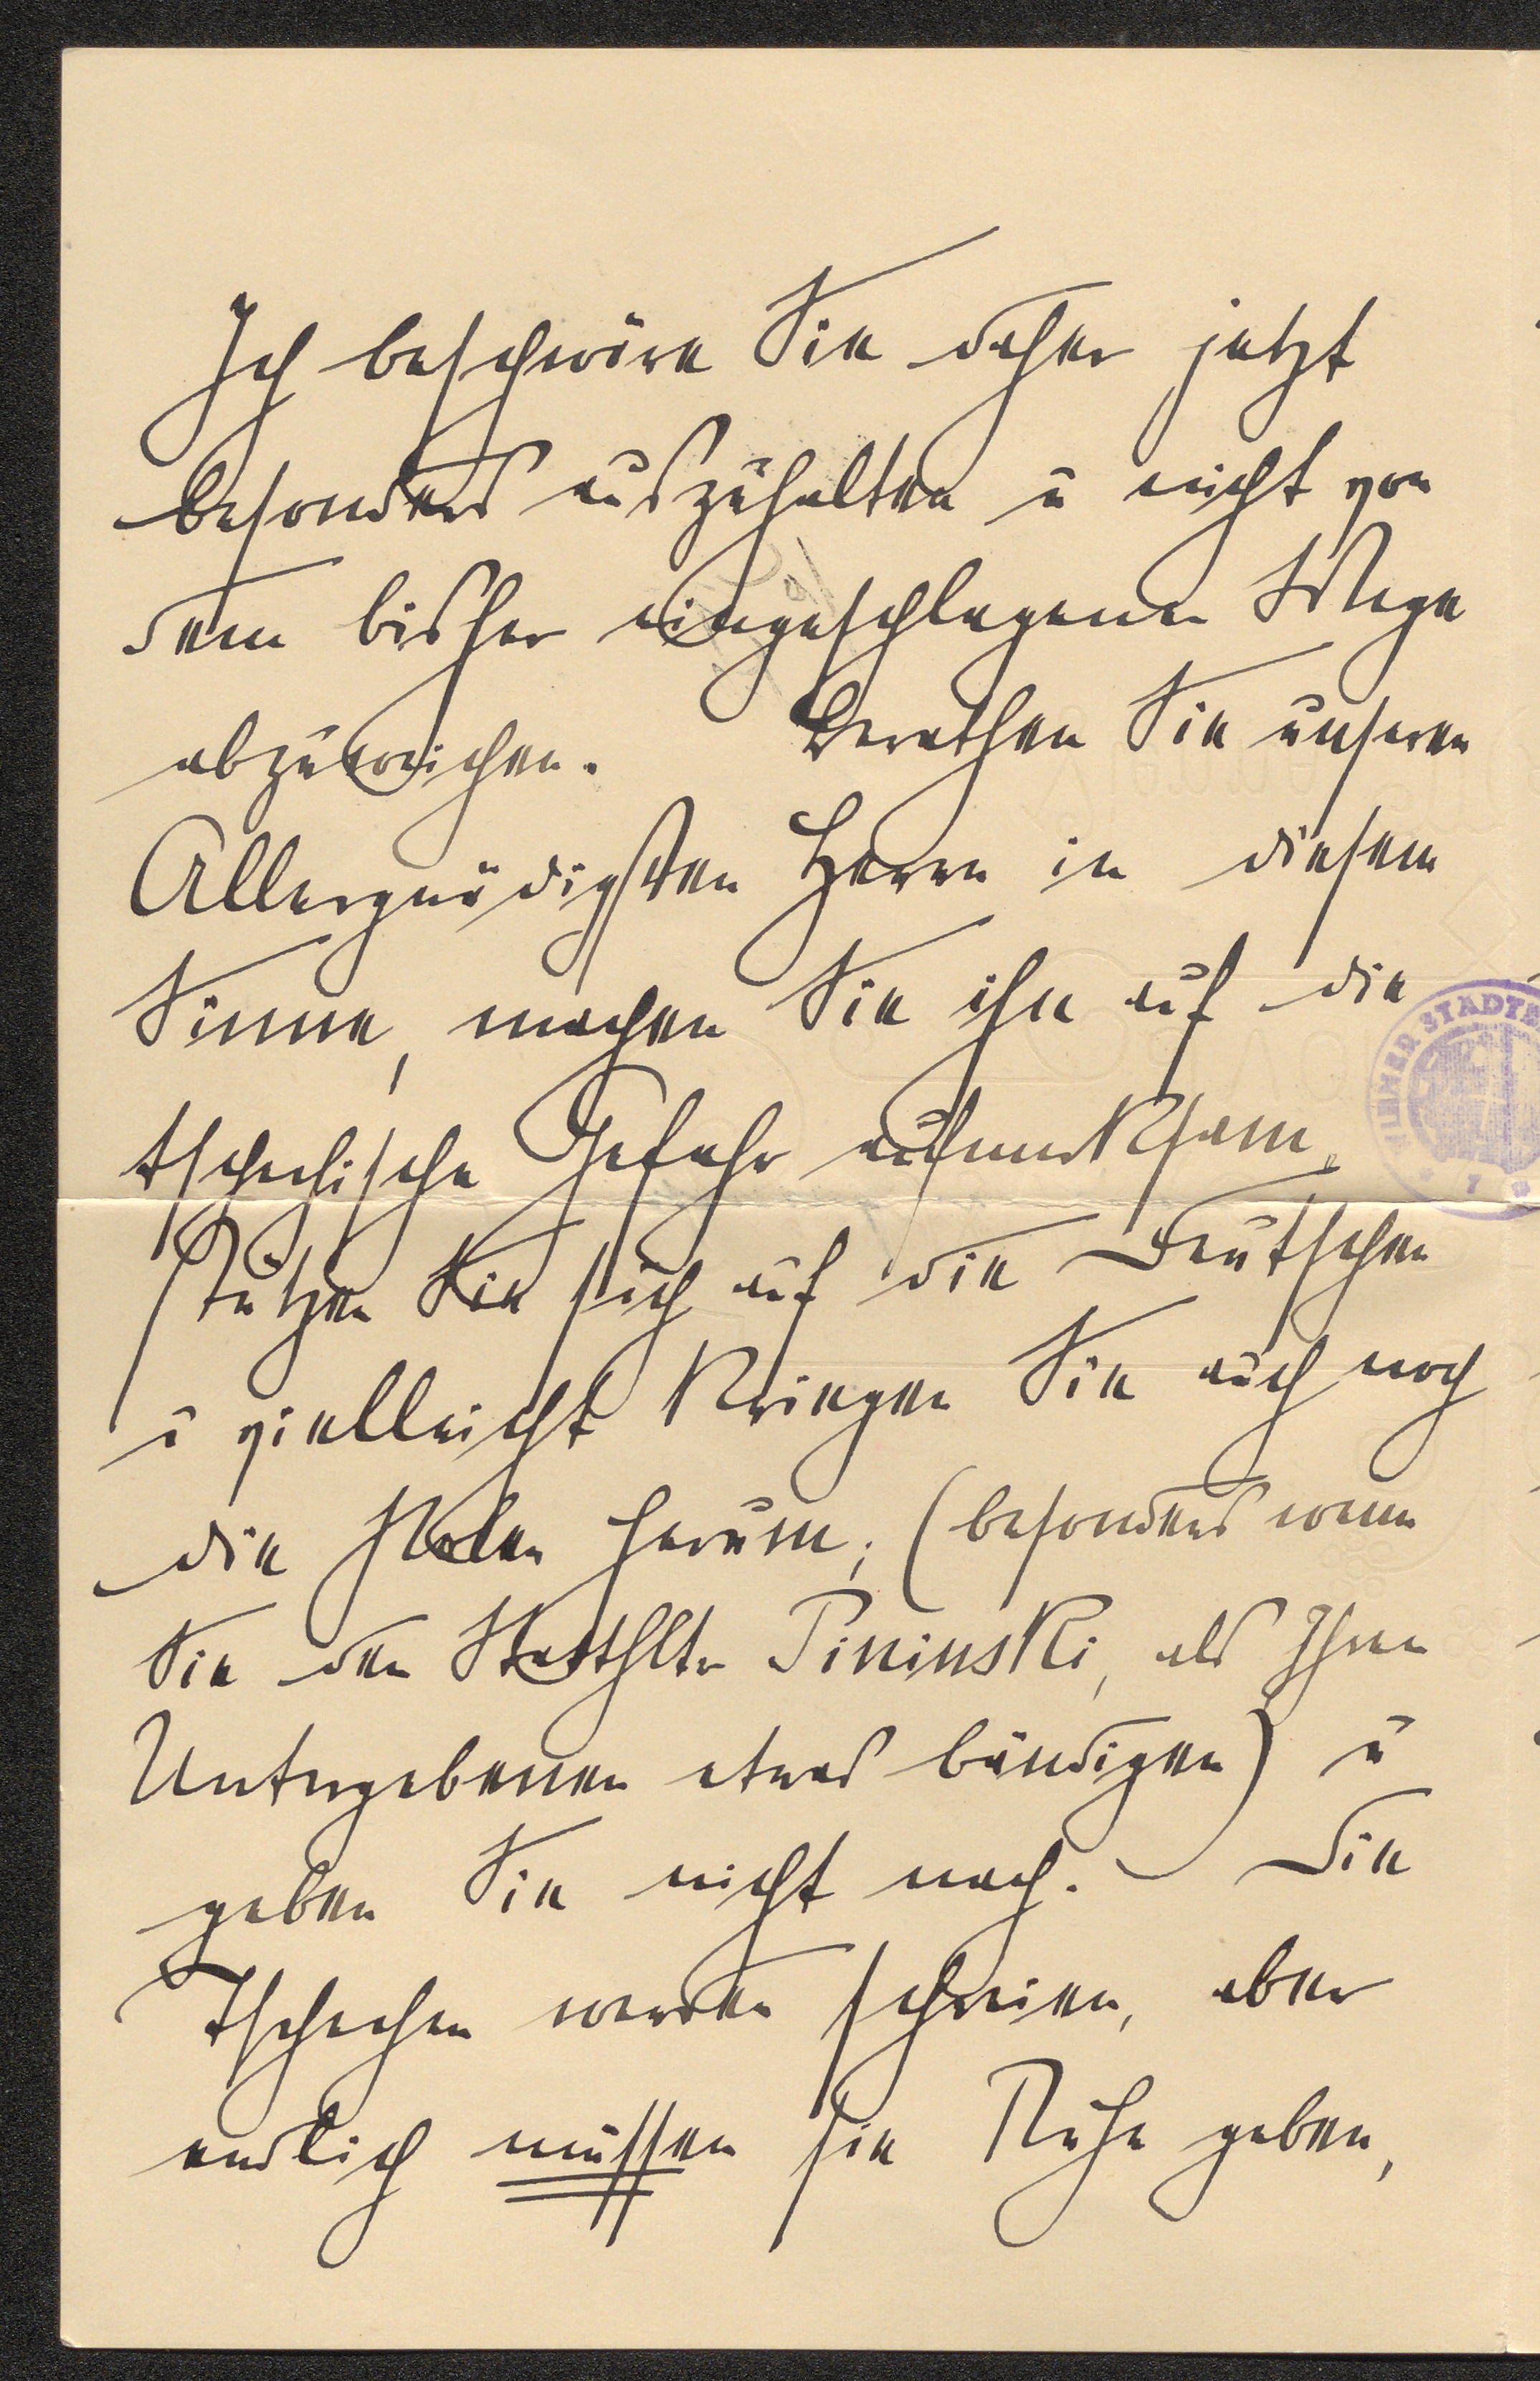 Ich beschwöre Sie daher jetzt
besonders auszuhalten u nicht von
dem bisher eingeschlagenen Wege
abzuweichen. Berathen Sie unseren
Allergnädigsten Herrn in diesem
Sinne, machen Sie ihn auf die
tschechische Gefahr aufmerksam,
stützen Sie sich auf die Deutschen
u vielleicht kriegen Sie auch noch
die Polen herum; (besonders wenn
Sie den Statthltr Pininski, als Ihren
Untergebenen etwas bändigen) u
geben Sie nicht nach. – Die
Tschechen werden schreien, aber
endlich müssen sie Ruhe geben,
IENER STÄDTE